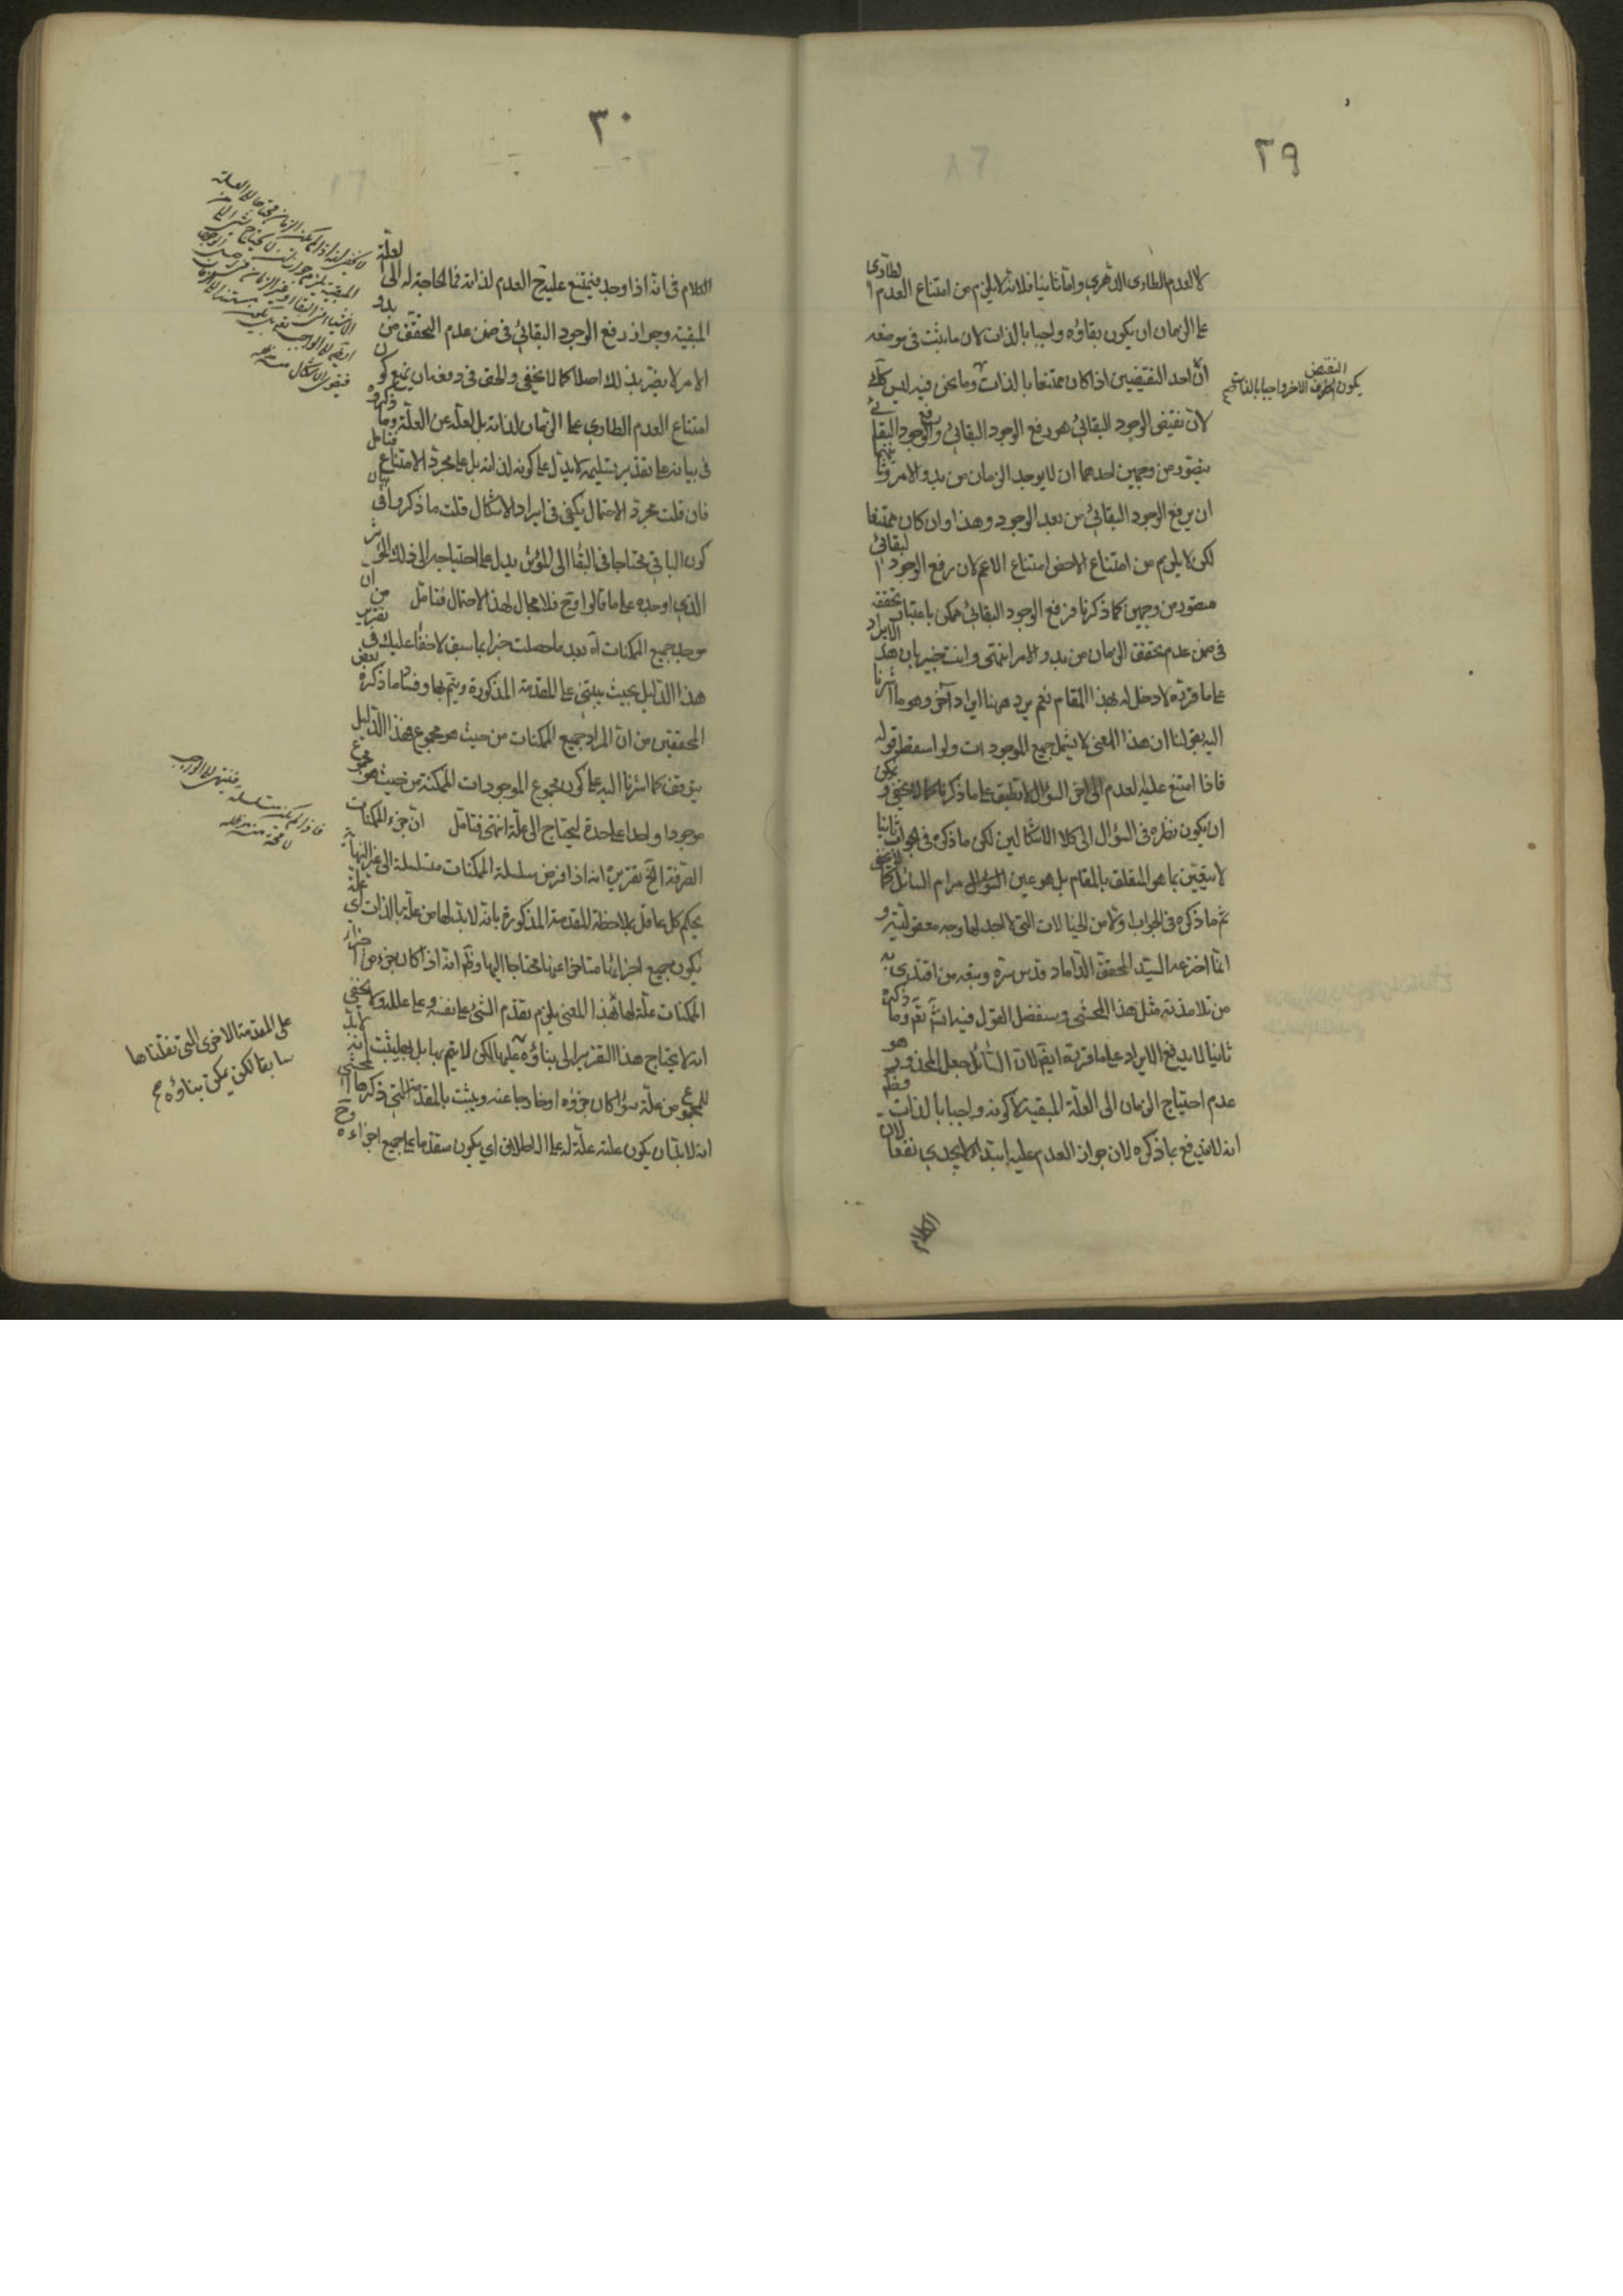 ٢٩
لا العدم الطاري الدهري واما ثانيا فلانه لا يلزم من امتناع العدم الطاري
على الزمان ان يكون بقاؤه واجبا بالذات لان ما يثبت في موضعه
ان احد النقيضين اذا كان ممتنعا بالذات وما نحن فيه ليس كذلك
يكون النقيض الاخر واجبا بالذات
لان نقيض الوجود البقائي هو رفع الوجود البقائي ورفع الوجود البقائي
يتصور من وجهين احدهما ان لا يوجد الزمان من بدو الامر وثانيهما
ان يرفع الوجود البقائي من بعد الوجود وهذا وان كان ممتنعا
لكن لا يلزم من امتناع الاخص امتناع الاعم لان رفع الوجود البقائي
متصور من وجهين كما ذكرنا فرفع الوجود البقائي ممكن باعتبار تحققه
في ضمن عدم تحقق الزمان من بدو الامر انتهى وانت خبير بان هذا الايراد
على ما قررته لا دخل له بهذا المقام نعم يرد ههنا ايراد آخر وهو ما اشرنا
اليه بقولنا ان هذا المعنى لا يشمل جميع الموجودات ولو اسقط قوله
فاذا امتنع عليه العدم الى اخر السؤال لانطبق على ما ذكرنا كما لا يخفى ويمكن
ان يكون نظره في السؤال الى كلا الاشكالين لكن ما ذكره في الجواب ثانيا
لا يتعين بما هو المتعلق بالمقام بل هو عين مرام السائل كما لا يخفى
ثم ما ذكره في الجواب اولا من الخيالات التي لا اجد لها وجه معقولية و
انما اخترعه السيد المحقق الداماد قدس سره وتبعه من اقتدى به
من تلامذته مثل هذا المحشي وسنفصل القول فيه انشاء الله تعالى وما ذكره
ثانيا لا يدفع الايراد على ما قررته ايضا لان السائل جعل المحذور هو
عدم احتياج الزمان الى العلة المبقية لا كونه واجبا بالذات وظاهر
انه لا يندفع بما ذكره لان جواز العدم عليه ابتداء لا يجدي نفعا لان
الكلام
٣٠
الكلام في انه اذا وجد فيمتنع عليه ح العدم لذاته فما الحاجة له الى العلة
المبقية وجواز رفع الوجود البقائي في ضمن عدم التحقق من بدو
الامر لا يضر بذلك اصلا كما لا يخفى والحق في دفعه ان يمنع كون
امتناع العدم الطاري على الزمان لذاته بل لعله من العلة وما ذكروه
في بيانه على تقدير تسليمه لا يدل على كونه لذاته بل على مجرد الامتناع فتامل
فان قلت مجرد الاحتمال يكفي في ايراد الاشكال قلت ما ذكروا في بيان
كون الباقي محتاجا في البقاء الى المؤثر يدل على احتياجه الى ذلك المؤثر
الذي اوجده على ما قالوا وح فلا مجال لهذا الاحتمال فتامل من ان
موجد جميع الممكنات آه بعد ما حصلت خبرا بما سبق لا خفاء عليك في تقرير
هذا الدليل بحيث يبتني على المقدمة المذكورة ويتم بها وفساد ما ذكره بعض
المحققين من ان المراد جميع الممكنات من حيث هو مجموع فهذا الدليل
يتوقف كما اشرنا اليه على كون مجموع الموجودات الممكنة من حيث هو مجموع
موجودا واحدا على حدة ليحتاج الى علة انتهى فتامل ان جزء الممكنات
الصرفة الخ تقريره انه اذا فرض سلسلة الممكنات متسلسلة الى غير النهاية
يحكم كل عاقل بملاحظة المقدمة المذكورة بانه لا بد لها من علة بالذات اي علة
يكون جميع اجزائها متاخرا عنها محتاجا اليها وظهر انه اذا كان جزء من اجزاء
الممكنات علة لها بهذا المعنى يلزم تقدم الشئ على نفسه وعلى علله ولا يخفى
انه لا يحتاج هذا التقرير الى بناؤه عليها لكن لا يتم بها بل يثبت انه لا بد
للمجموع من علة سواء كان جزؤه او خارجا عنه ويثبت بالمقدمة التي ذكرها المحشي
انه لا بد ان يكون علته علة له على الاطلاق اي يكون متقدما على جميع اجزاءه وح
فاذا لم يكن متسلسلة فينتهي الى الواجب
على المقدمة الاخرى التي نقلناها
سابقا لكن يمكن بناؤه